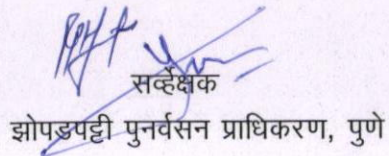 सर्व्हेक्षक
झोपडपट्टी पुनर्वसन प्राधिकरण, पुणे